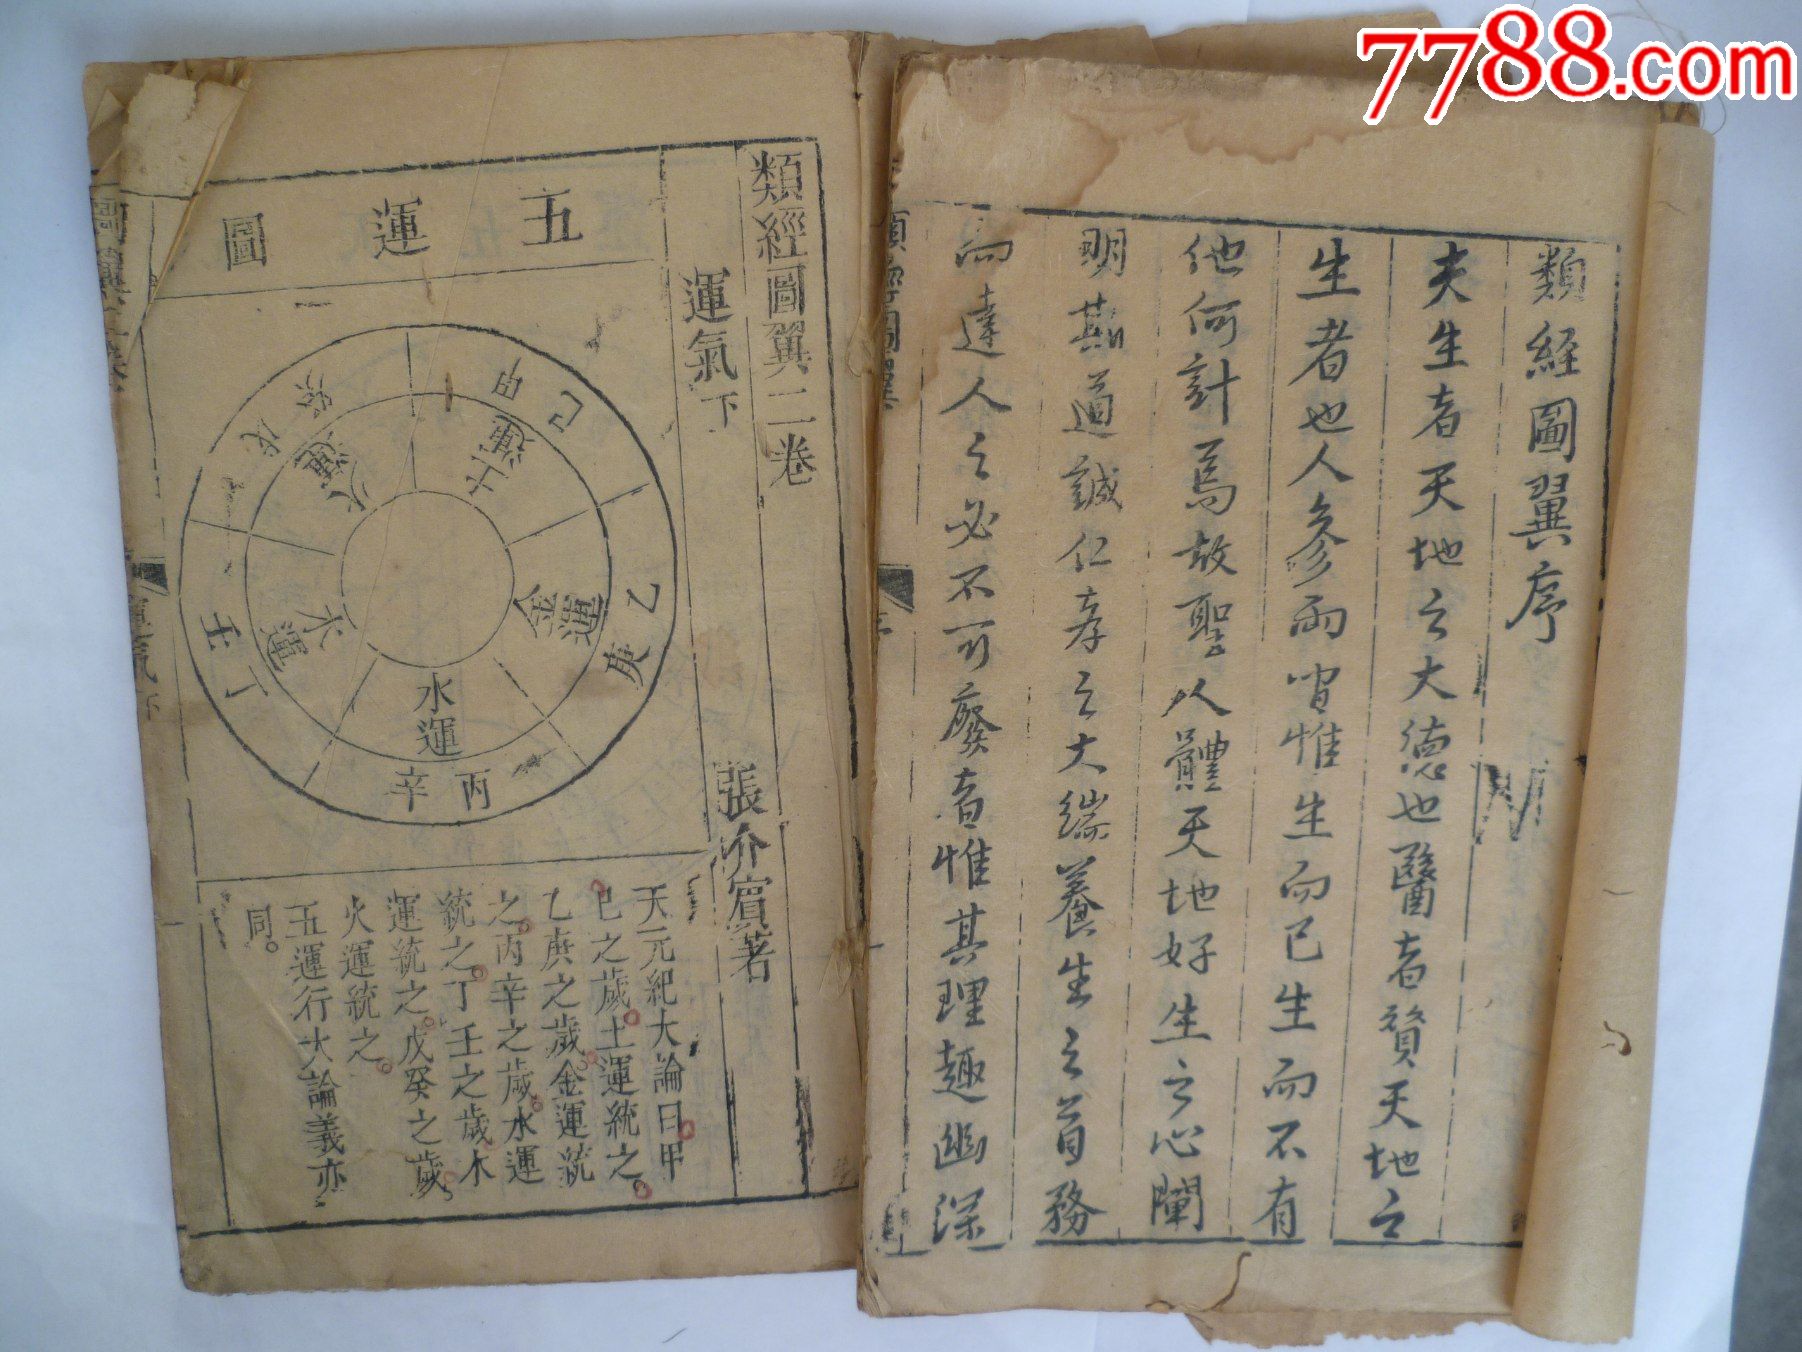 7788.com
類経圖翼序
夫生者天地之大德也醫者贊天地之
生者也人參兩間惟生而已生而不有
他何計焉故聖人體天地好生之心闡
明斯道誠仁孝之大端養生之首務
而達人之必不可廢者惟其理趣幽深
類經圖翼
序
類經圖翼二卷
運氣下
張介賓著
五運圖
土運
甲己
金運
乙庚
水運
丙辛
木運
丁壬
火運
戊癸
天元紀大論曰甲
己之歲土運統之。
乙庚之歲金運統
之。丙辛之歲。水運
統之。丁壬之歲木
運統之。戊癸之歲。
火運統之。
五運行大論義亦
同。
運氣下